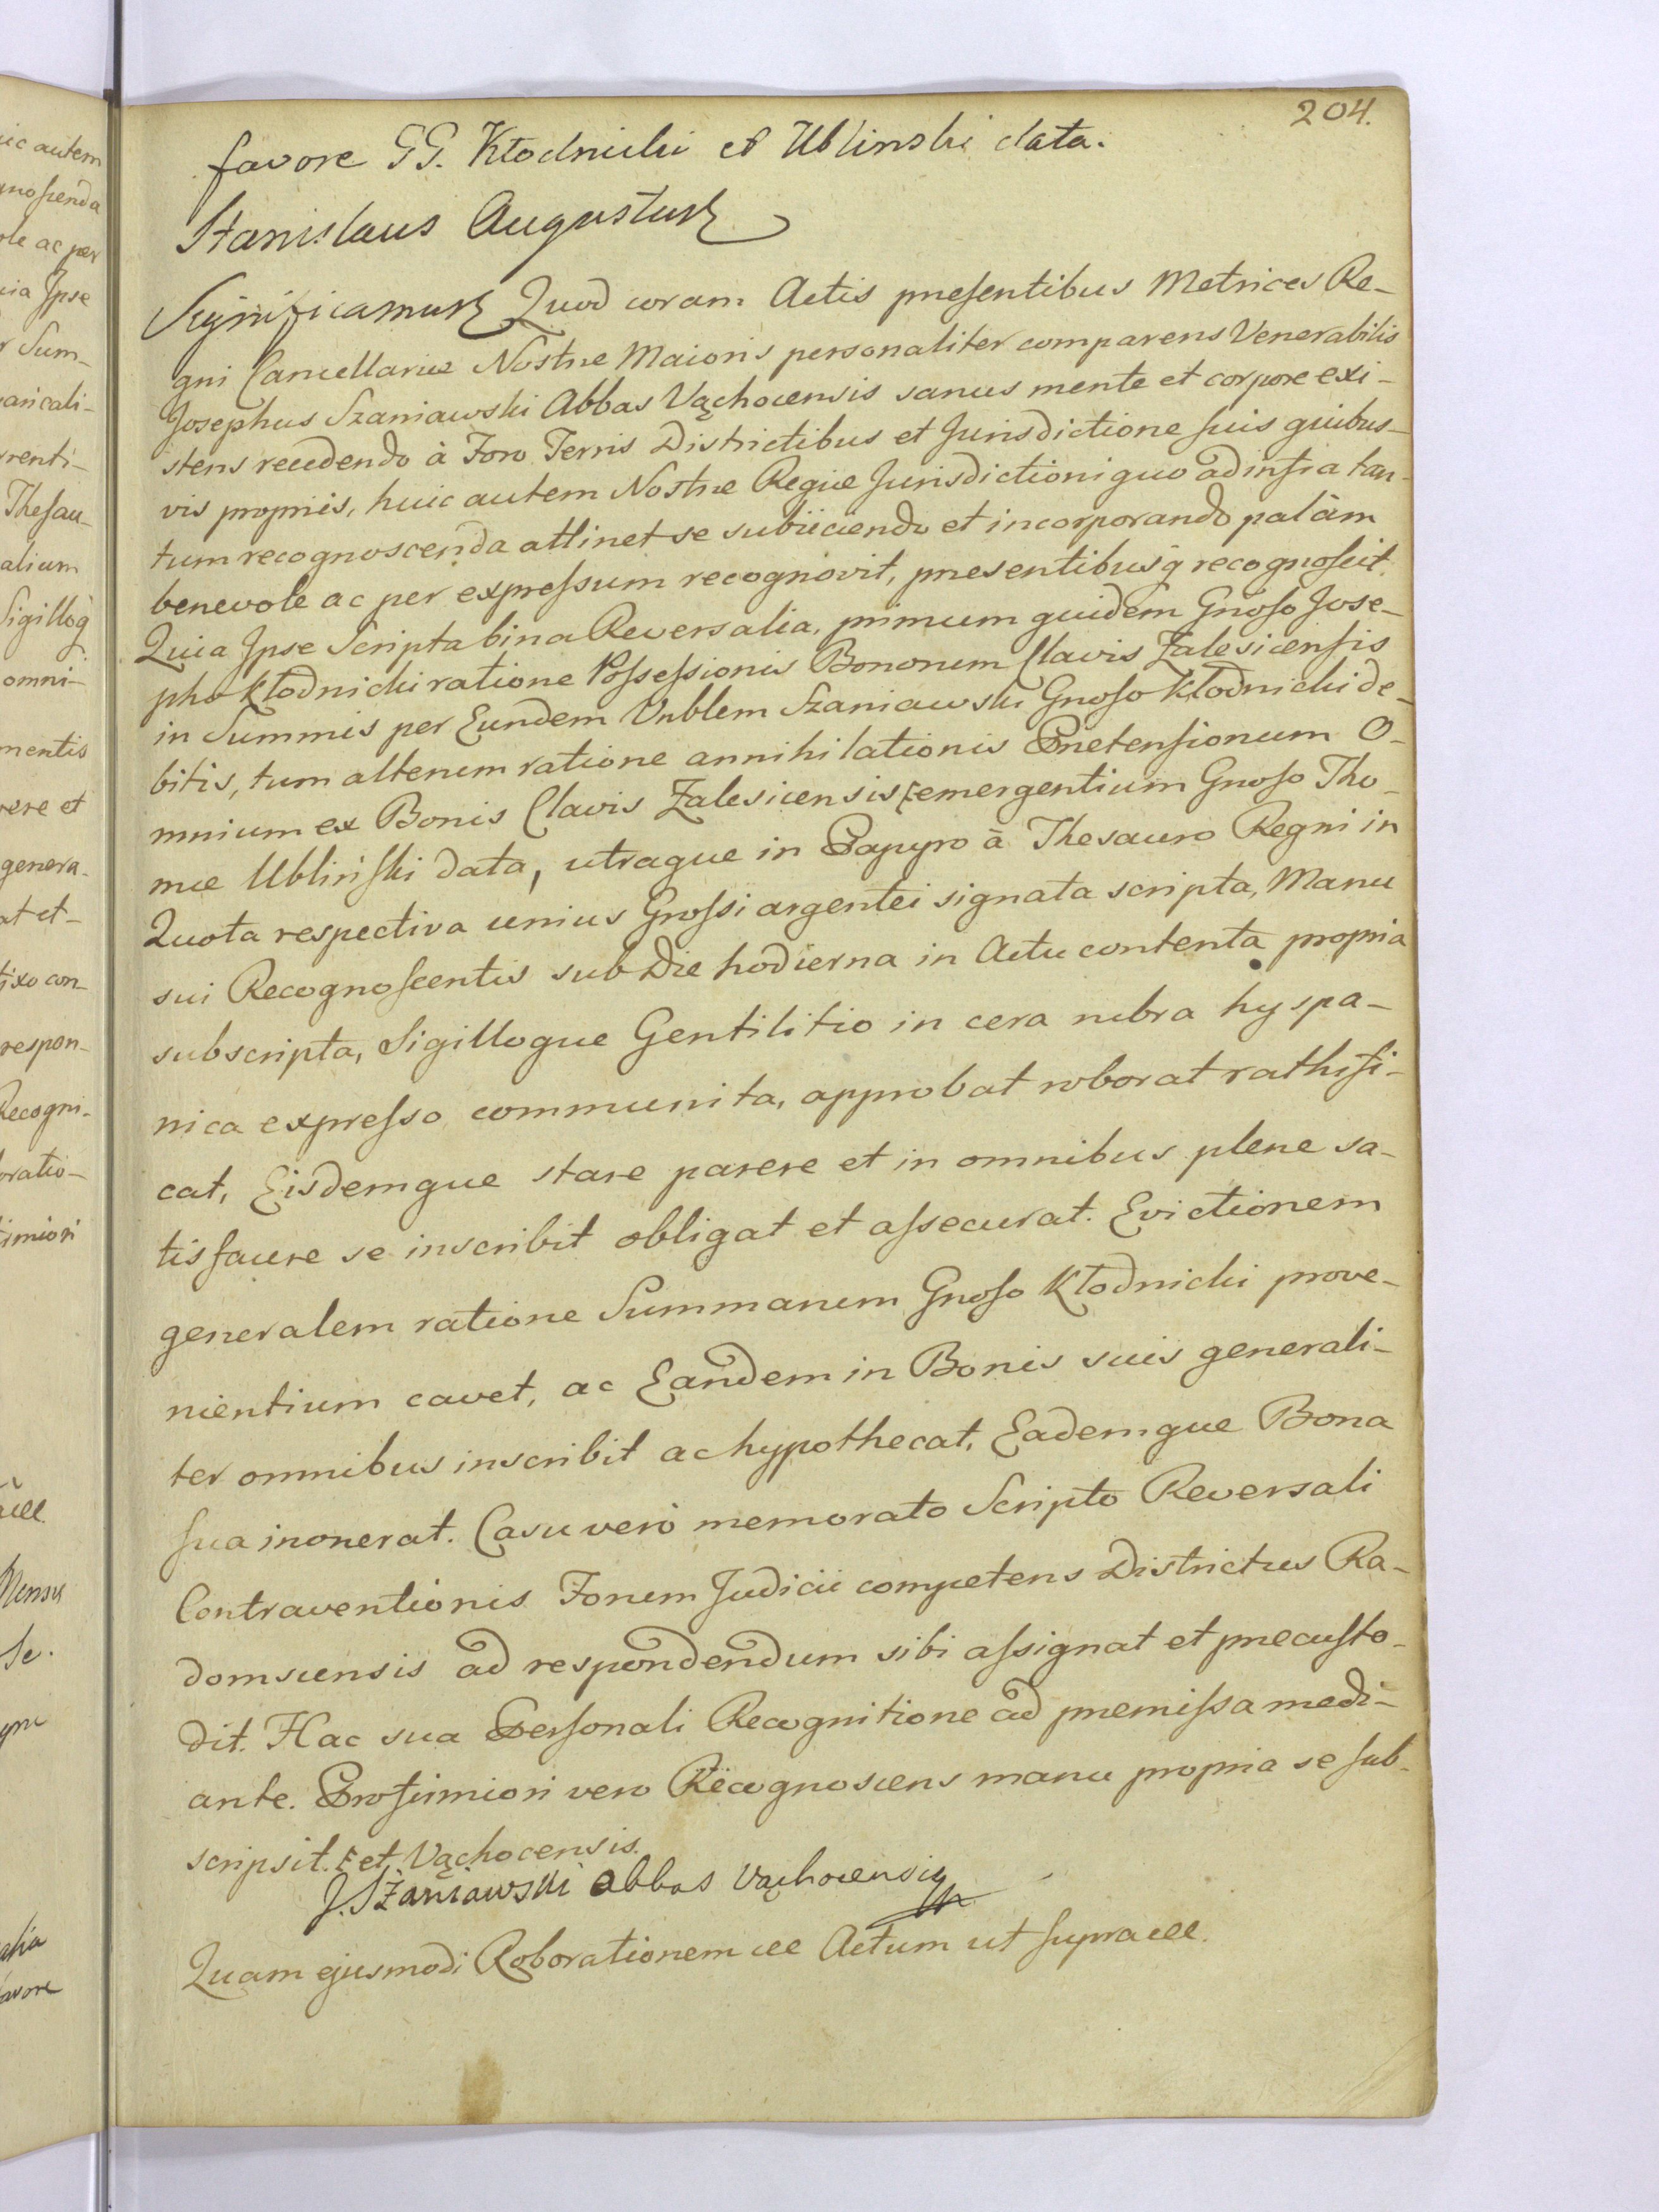 204.
favore GG. Kłodnicki et Ublinski data.
Stanislaus Augustus
Significamus Quod coram Actis præsentibus Metrices Re-
gni Cancellariæ Nostræ Maioris personaliter comparens Venerabilis
Josephus Szaniawski Abbas Vąchocensis sanus mente et corpore exi-
stens recedendo à Foro Terris Districtibus et Jurisdictione suis quibus-
vis propriis, huic autem Nostræ Regiæ Jurisdictioni quo ad infra tan-
tum recognoscenda attinet se subiiciendo et incorporando palàm
benevole ac per expressum recognovit, præsentibusq̃ recognoscit.
Quia Ipse Scripta bina Reversalia, primum quidem Gnoso Jose-
pho Kłodnicki ratione Possessionis Bonorum Clavis Zalesicensis
in Summis per Eundem Vnblem Szaniawski Gnoso Kłodnicki de-
bitis, tum alterum ratione annihilationis Prætensionum O-
mnium ex Bonis Clavis Zalesicensis emergentium Gnoso Tho-
mæ Ubliński data, utraque in Papyro à Thesauro Regni in
Quota respectiva unius Grossi argentei signata scripta, Manu
sui Recognoscentis sub Die hodierna in Actu contenta propria
subscripta, Sigilloque Gentilitio in cera rubra hyspa-
nica expresso communita, approbat roborat rathifi-
cat, Eisdemque stare parere et in omnibus plene sa-
tisfacere se inscribit obligat et assecurat. Evictionem
generalem ratione Summarum Gnoso Kłodnicki prove-
nientium cavet, ac Eandem in Bonis suis generali-
ter omnibus inscribit ac hypothecat, Eademque Bona
sua inonerat. Casu verò memorato Scripto Reversali
Contraventionis Forum Judicii competens Districtus Ra-
domsciensis ad respondendum sibi assignat et præcusto-
dit. Hac sua Personali Recognitione ad præmissa medi-
ante. Profirmiori vero Recognoscens manu propria se sub-
scripsit. et Vąchocensis.
J. Szaniawski Abbas Vąchocensis
Quam ejusmodi Roborationem ett Actum ut supra ett.
ic autem
gnoscenda
ole ac per
uia Ipse
r Sum-
rancali-
rrenti-
Thesau-
alium
Sigilloq̃
omni-
mentis
rere et
genera-
at et-
fixo con-
respon-
Recogni-
oratio-
irmiori